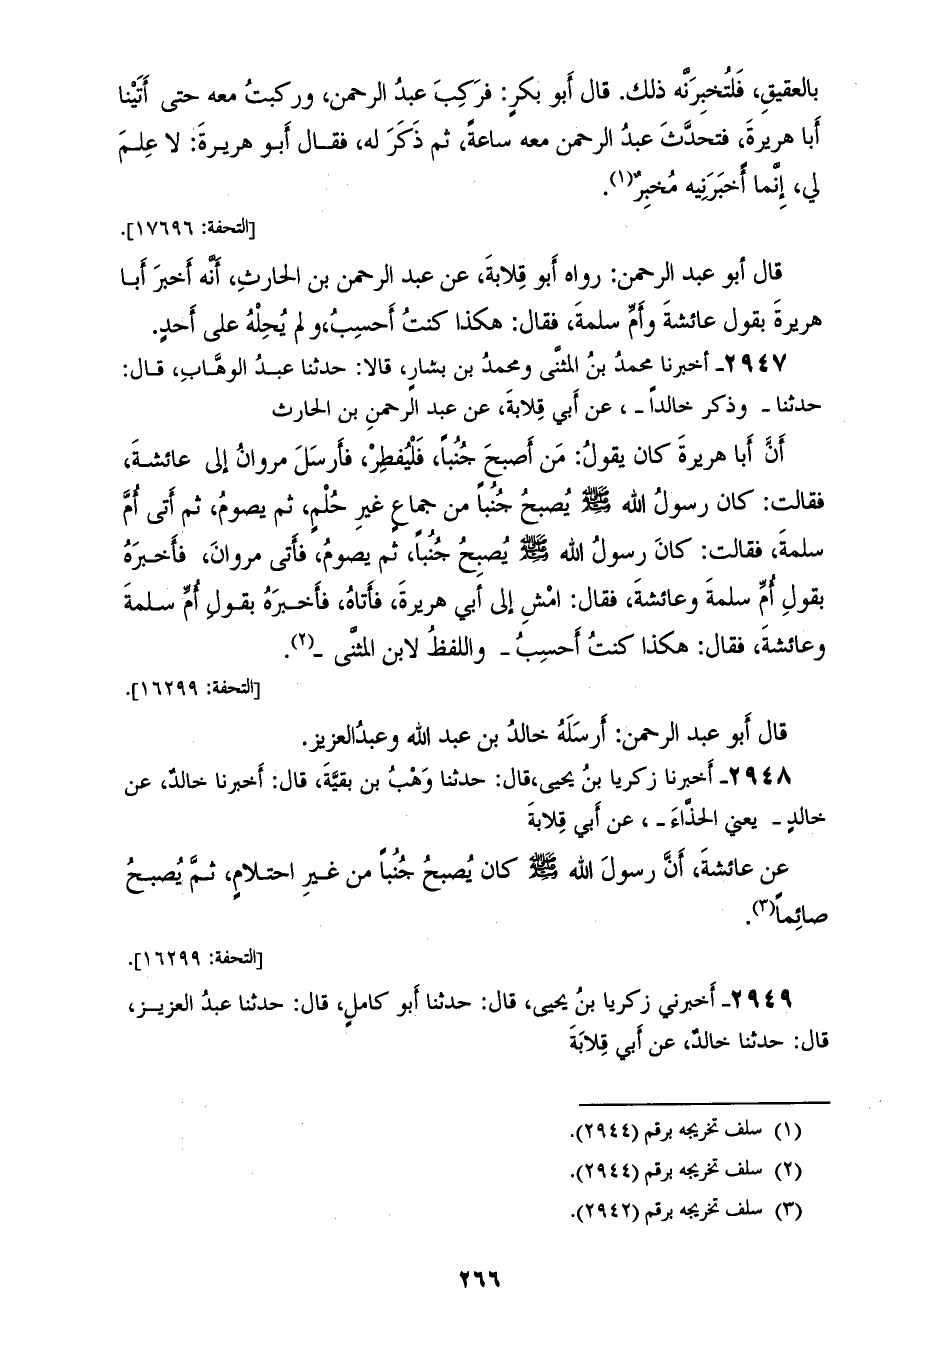 بالعقيقِ، فَلَتُخبِرَنَّه ذلك. قال أبو بكرٍ: فرَكِبَ عبدُ الرحمن، وركبتُ معه حتى أَتَيْنا
أبا هريرةَ، فتحدَّثَ عبدُ الرحمن معه ساعةً، ثم ذَكَرَ له، فقال أبو هريرةَ: لا عِلمَ
لي، إنَّما أَخبَرَنِيه مُخبِرٌ(١).
[التحفة: ١٧٦٩٦].
قال أبو عبد الرحمن: رواه أبو قِلابةَ، عن عبد الرحمن بن الحارثِ، أنَّه أخبرَ أبا
هريرةَ بقول عائشةَ وأمِّ سلمةَ، فقال: هكذا كنتُ أَحسِبُ، ولم يُحِلْهُ على أَحدٍ.
٢٩٤٧ـ أخبرنا محمدُ بنُ المثنَّى ومحمدُ بن بشارٍ، قالا: حدثنا عبدُ الوهَّابِ، قال:
حدثنا ـ وذكر خالداً ـ ، عن أبي قِلابةَ، عن عبد الرحمنِ بن الحارث
أنَّ أبا هريرةَ كان يقولُ: مَن أَصبحَ جُنُباً، فَلْيُفطِرْ، فأَرسَلَ مروانُ إلى عائشةَ،
فقالت: كان رسولُ الله ﷺ يُصبحُ جُنُباً من جماعٍ غيرِ حُلْمٍ، ثم يصومُ، ثم أَتى أُمَّ
سلمةَ، فقالت: كانَ رسولُ الله ﷺ يُصبِحُ جُنُباً، ثم يصومُ، فأَتى مروانَ، فأَخبرَهُ
بقولِ أُمِّ سلمةَ وعائشةَ، فقال: امْشِ إلى أبي هريرةَ، فأَتاهُ، فأَخبرَهُ بقولِ أُمِّ سلمةَ
وعائشةَ، فقال: هكذا كنتُ أَحسِبُ ـ واللفظُ لابن المثنَّى ـ(٢).
[التحفة: ١٦٢٩٩].
قال أبو عبد الرحمن: أَرسَلَهُ خالدُ بن عبد الله وعبدُالعزيز.
٢٩٤٨ـ أخبرنا زكريا بنُ يحيى،قال: حدثنا وَهْبُ بن بقيَّةَ، قال: أخبرنا خالدٌ، عن
خالدٍ ـ يعني الحذَّاءَ ـ ، عن أبي قِلابةَ
عن عائشةَ، أنَّ رسولَ الله ﷺ كان يُصبحُ جُنُباً من غيرِ احتلامٍ، ثمَّ يُصبحُ
صائِماً(٣).
[التحفة: ١٦٢٩٩].
٢٩٤٩ـ أخبرني زكريا بنُ يحيى، قال: حدثنا أبو كاملٍ، قال: حدثنا عبدُ العزيز،
قال: حدثنا خالدٌ، عن أبي قِلابَةَ
(١) سلف تخريجه برقم (٢٩٤٤).
(٢) سلف تخريجه برقم (٢٩٤٤).
(٣) سلف تخريجه برقم (٢٩٤٢).
٢٦٦